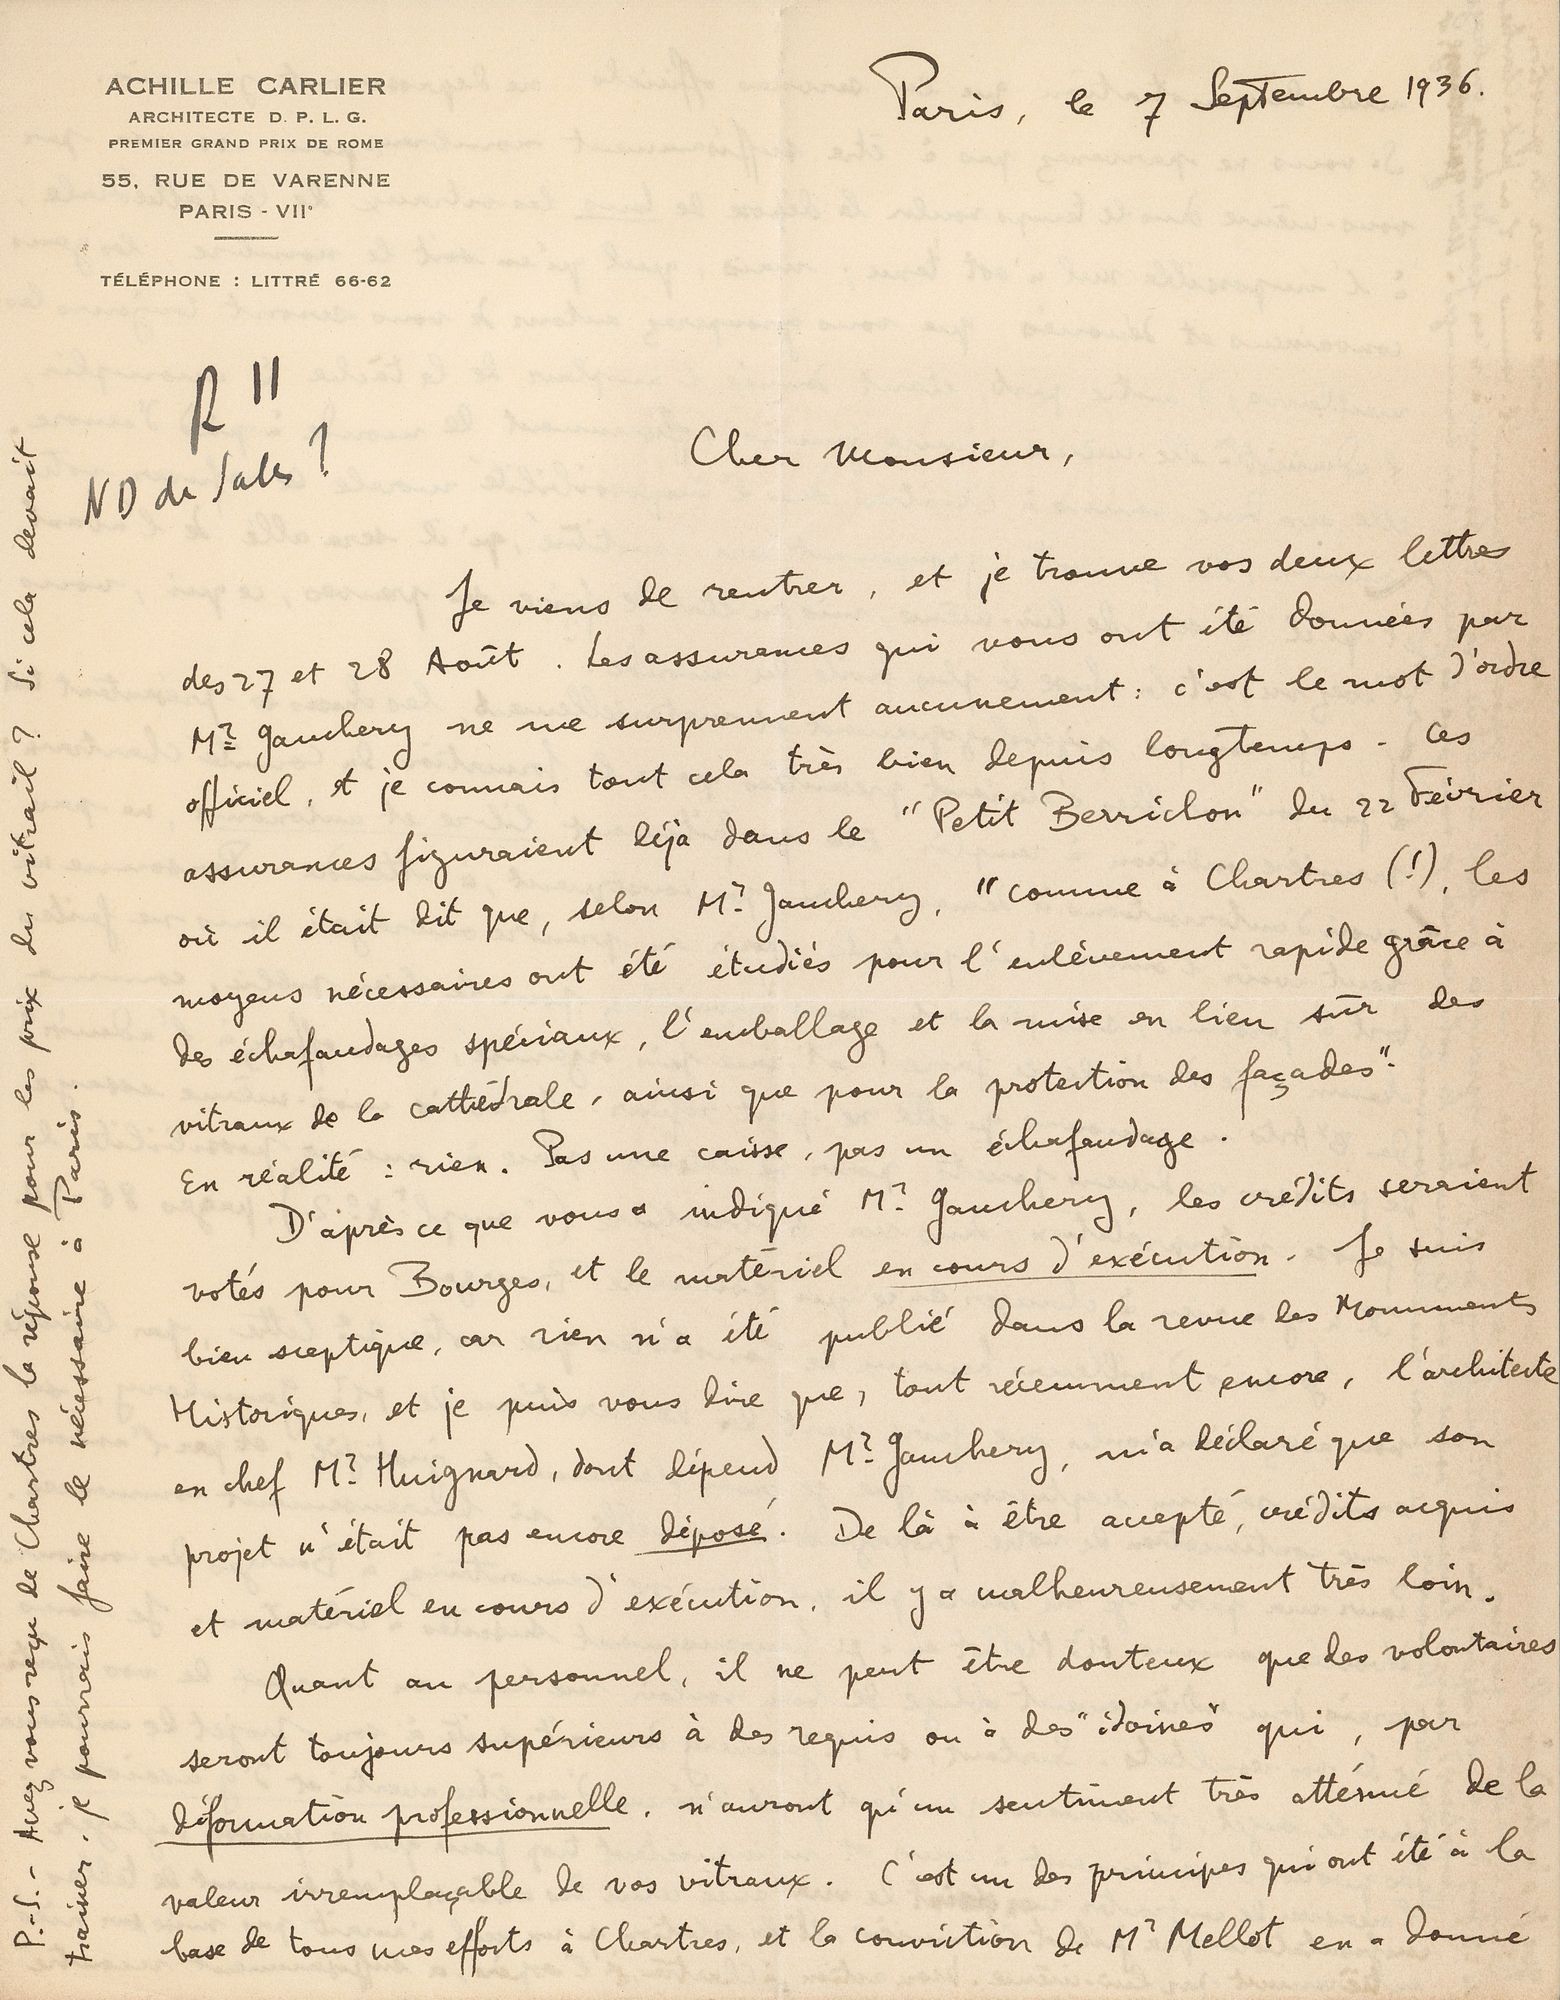 ACHILLE CARLIER
ARCHITECTE D. P. L. G.
PREMIER GRAND PRIX DE ROME
55, RUE DE VARENNE
PARIS - VIIe
TÉLÉPHONE : LITTRÉ 66-62
Paris, le 7 Septembre 1936.
R 11
ND de Sales ?
Cher Monsieur,
Je viens de rentrer, et je trouve vos deux lettres
des 27 et 28 Août. Les assurances qui vous ont été données par
Mr Gauchery ne me surprennent aucunement : c'est le mot d'ordre
officiel, et je connais tout cela très bien depuis longtemps. Ces
assurances figuraient déjà dans le "Petit Berrichon" du 22 Février
où il était dit que, selon Mr Gauchery, "comme à Chartres (!), les
moyens nécessaires ont été étudiés pour l'enlèvement rapide grâce à
des échafaudages spéciaux, l'emballage et la mise en lieu sûr des
vitraux de la cathédrale, ainsi que pour la protection des façades".
En réalité : rien. Pas une caisse, pas un échafaudage.
D'après ce que vous a indiqué Mr Gauchery, les crédits seraient
votés pour Bourges, et le matériel en cours d'exécution. Je suis
bien sceptique, car rien n'a été publié dans la revue les Monuments
Historiques, et je puis vous dire que, tout récemment encore, l'architecte
en chef Mr Huignard, dont dépend Mr Gauchery, m'a déclaré que son
projet n'était pas encore déposé. De là à être accepté, crédits acquis
et matériel en cours d'exécution, il y a malheureusement très loin.
Quant au personnel, il ne peut être douteux que des volontaires
seront toujours supérieurs à des requis ou à des "idoines" qui, par
déformation professionnelle, n'auront qu'un sentiment très atténué de la
valeur irremplaçable de vos vitraux. C'est un des principes qui ont été à la
base de tous mes efforts à Chartres, et la conviction de Mr Mellot en a donné
P.-S.- Avez vous reçu de Chartres la réponse pour les prix du vitrail ? Si cela devait
traîner, je pourrais faire le nécessaire à Paris.